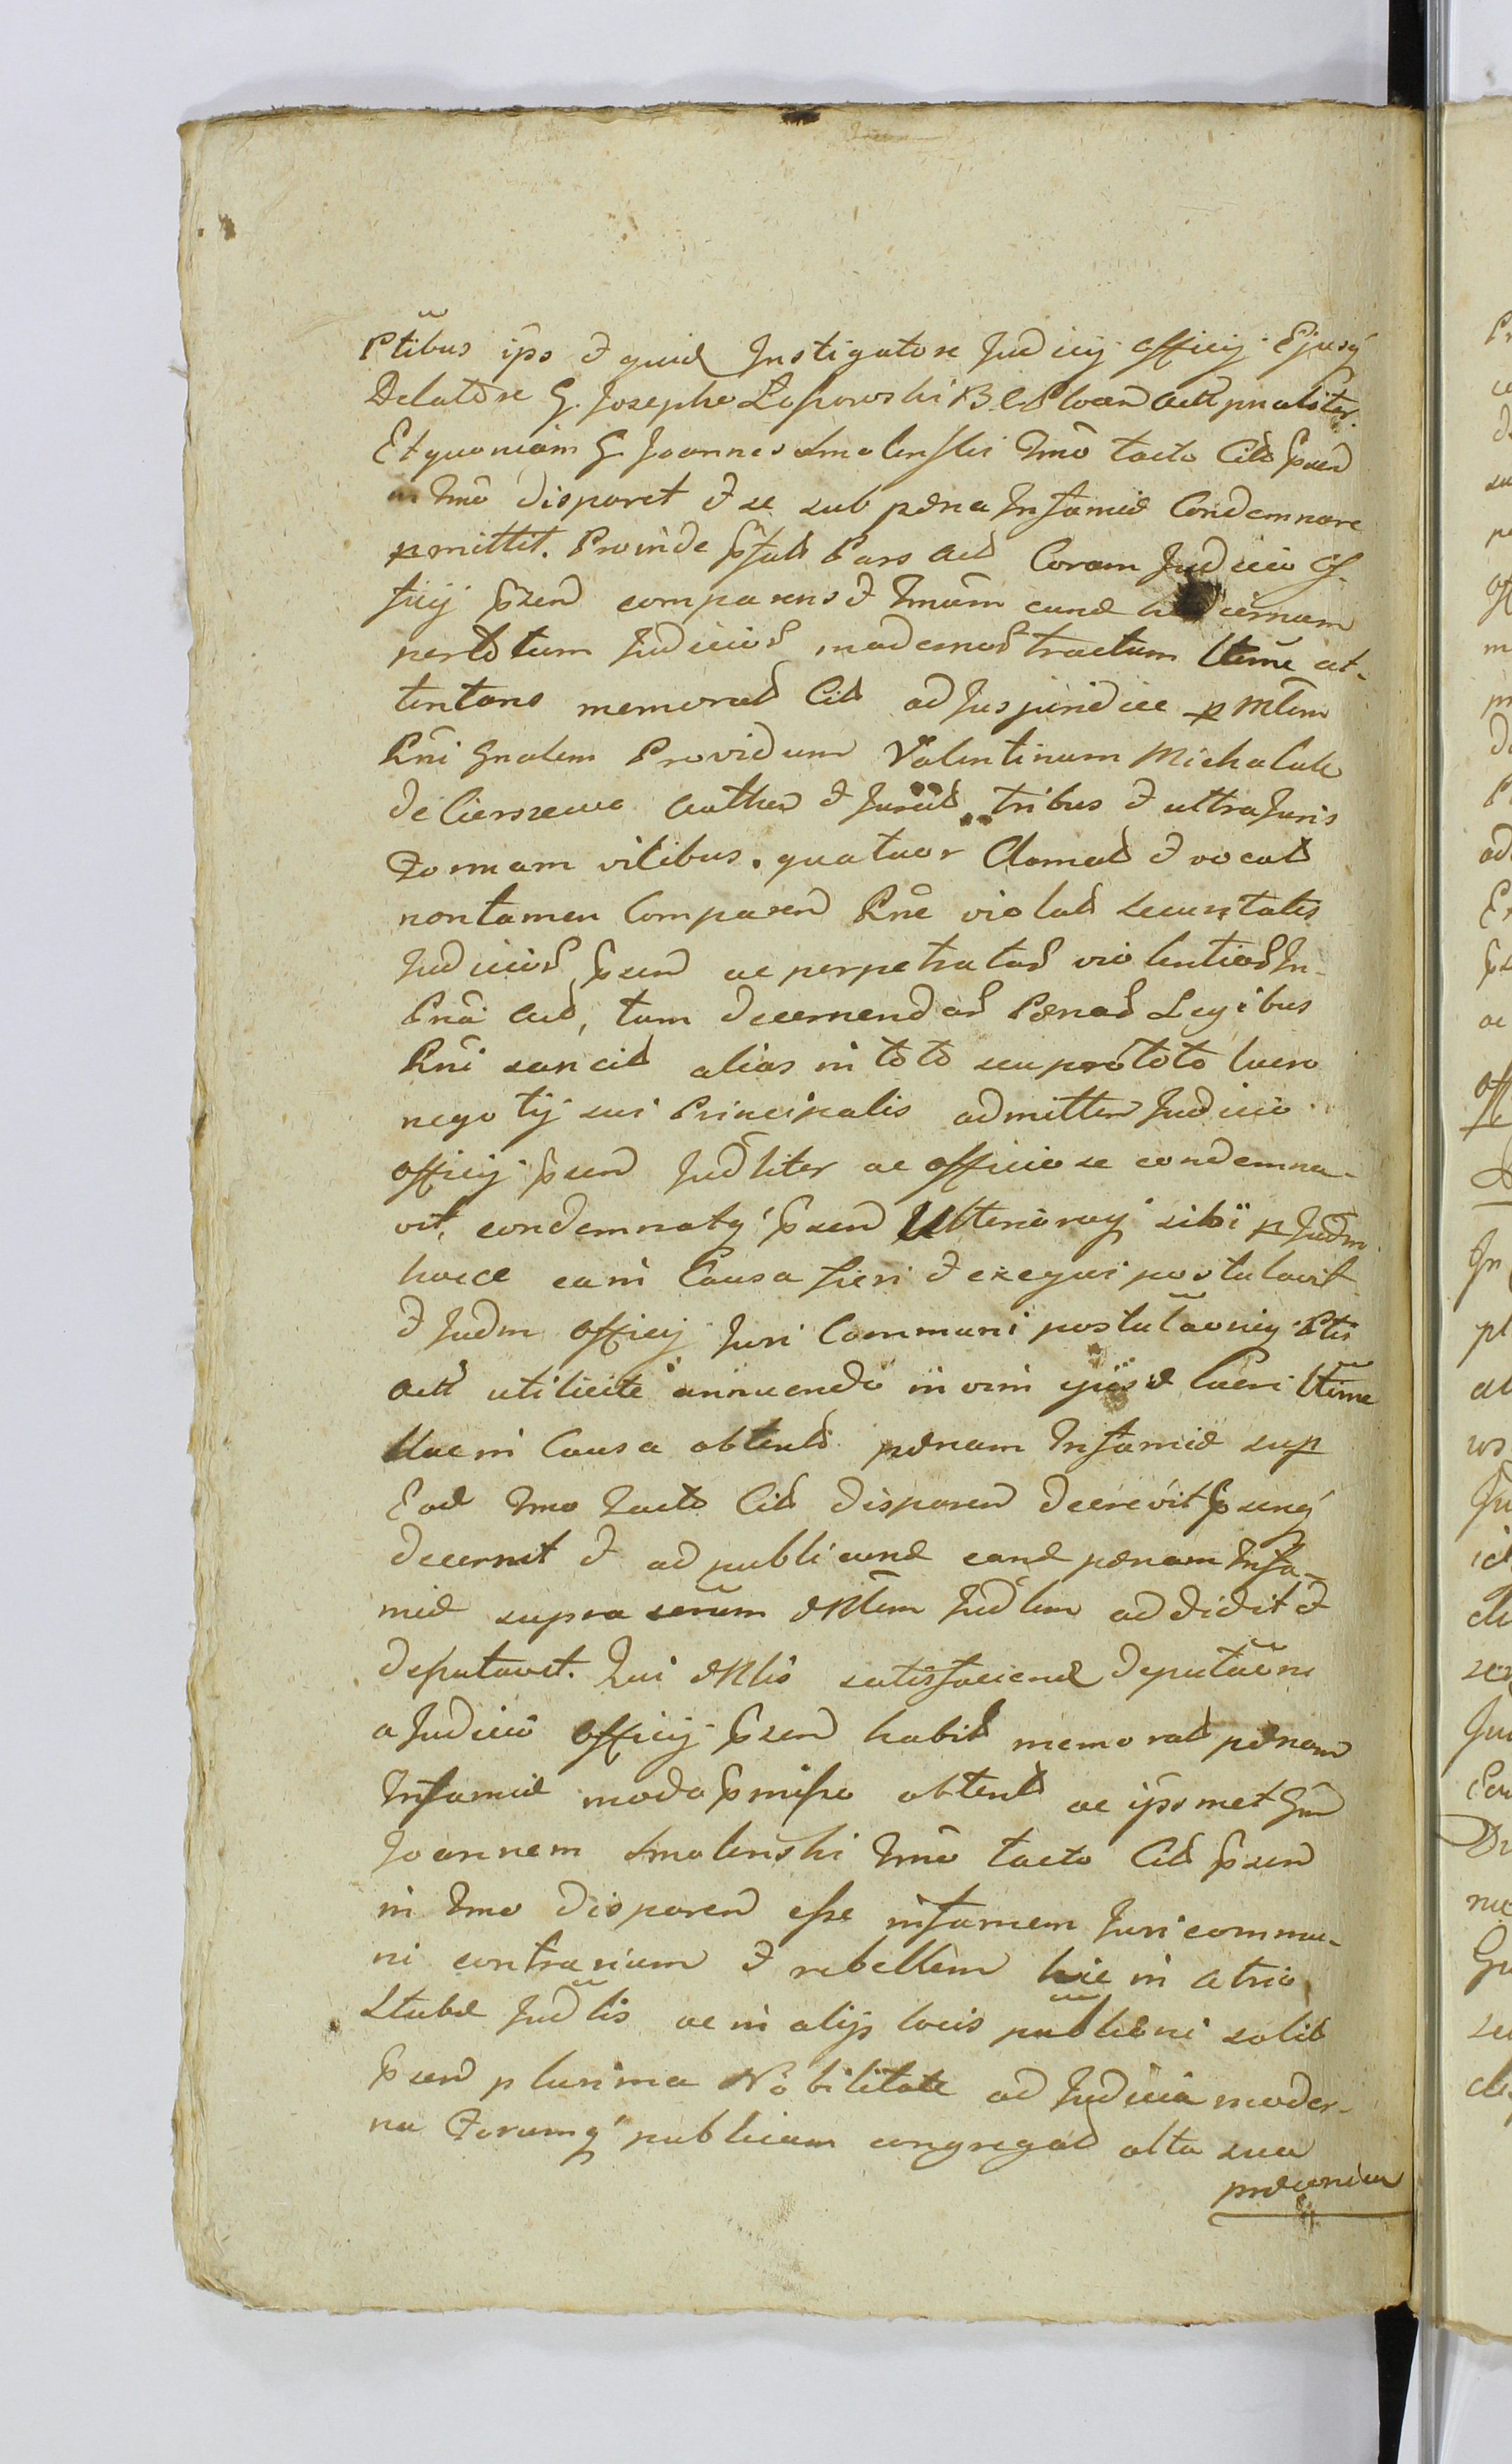 Ptibus ips & quid Instigatore Judicij Officij Ejusq
Delatore G. Josepho Łopowski B C P loan Actt pnaliter.
Et quoniam G. Joannes Smolenski Tmo tacto Citt Pszen
in Tmo disparet & se sub pœna Infamiæ Condemnare
pmittit. Proinde Pfatt Pars Act Coram Judicio Of-
ficij Pszen comparens & Tmum eund hodiernum
per totum Judicior modernor tractum ltime at-
tentans memorat Citt ad Jus juridice p Mlem
Rni Gnalem Providum Valentinum Michalak
de Cierszewo Authen & Jurat tribus & ultra Juris
Formam vicibus. quatuor Clamat & vocat
non tamen Comparen Rne violat securitatis
Judicior Pszen ac perpetratar violentiar In-
Pna Act, tum decernendar Pœnar Legibus
Rni sancit alias in toto seu pro toto lucro
negotij sui Principalis admitten Judicio
Officij Pszen Judliter ac officiose condemna-
vit, condemnatq Pszen Ulteriorag sibi p Judm
hocce ea in Causa fieri & exequi postulavit
& Judm Officij Juri Communi postulaoniq Ptis
Actt utilicite annuendo in vim ejusd Lucri ltime
Hac in Causa obtento pœnam Infamiæ sup
Eod Tmo tacto Citt disparen decrevit Pszenq
decernit & ad publicand eand pœnam Infa-
miæ supra scrum Mlem Judlem addidit &
deputavit. Qui Mlis satisfaciend deputaoni
a Judicio Officij Pszen habit memorat pœnam
Infamiæ modo Pmisso obtent ac ipsmet Gnm
Joannem Smolenski Tmo tacto Citt Pszen
in Tmo disparen esse infamem Juri commu-
ni contrarium & rebellem hic in atrio
Stubæ Judlis ac in alijs locis publicni solit
Pszen plurima Nobilitate ad Judicia moder-
na Forumq publicum congregat alta sua
præconia